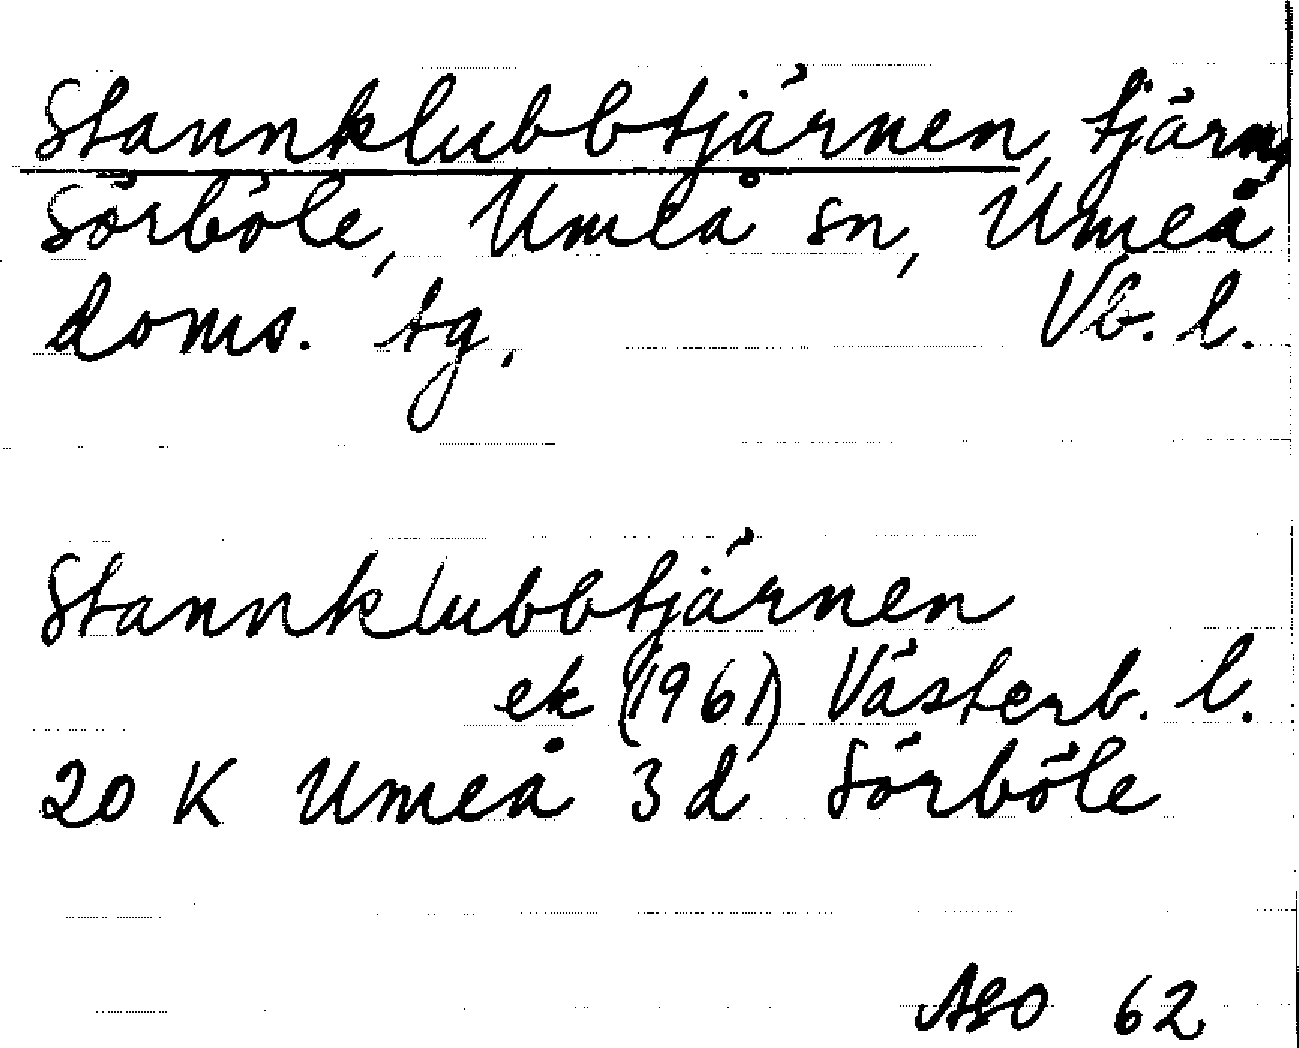 Stannklubbtjärnen, tjärn,
Sörböle, Umeå sn, Umeå
doms. tg. Vb. l.
Stannklubbtjärnen
ek (1961) Västerb. l.
20 K Umeå 3 d Sörböle
ASO 62